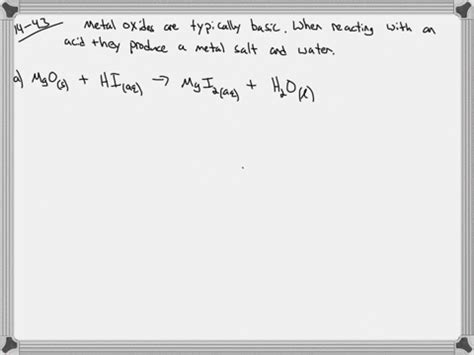 14-43 Metal oxides are typically basic. When reacting with an
acid they produce a metal salt and water.
a) MgO(s) + HI(aq) → MgI2(aq) + H2O(l)